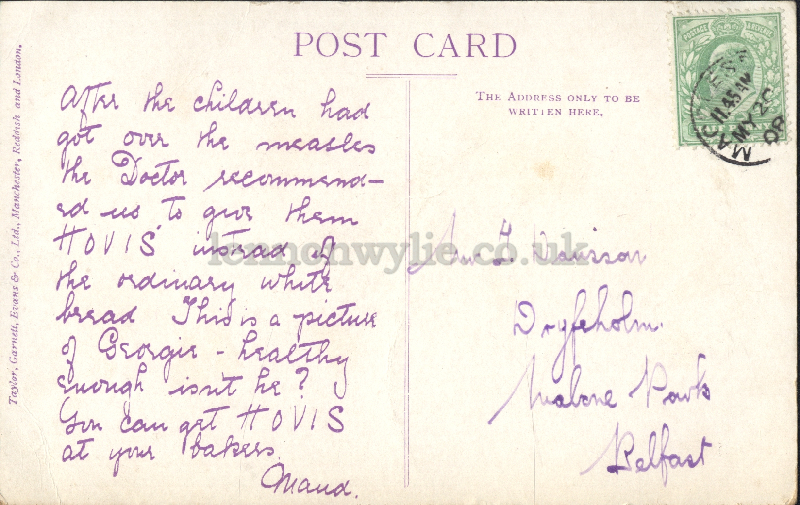 POST CARD
THE ADDRESS ONLY TO BE
WRITTEN HERE.
After the children had
got over the measles
the Doctor recommend-
ed us, to give them
HOVIS instead of
the ordinary white
bread This is a picture
of Georgie - healthy
enough isn't he?
You can get HOVIS
at your bakers.
Maud.
Davison
Dryfeholm.
Malone Park
Belfast
Taylor, Garnett, Evans & Co., Ltd., Manchester, Reddish and London.
POSTAGE REVENUE
11.45 AM
MY 26
08
lennonwylie.co.uk